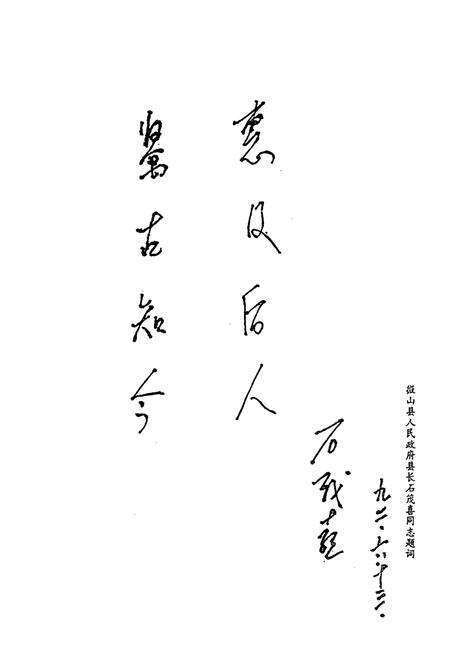 鉴古知今
惠及后人
石茂喜
九二.六.十二.
微山县人民政府县长石茂喜同志题词